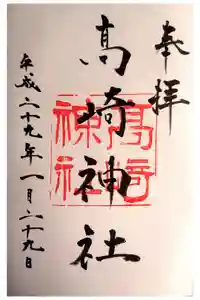 奉拝
高崎神社
高崎
神社
平成二十九年一月二十九日